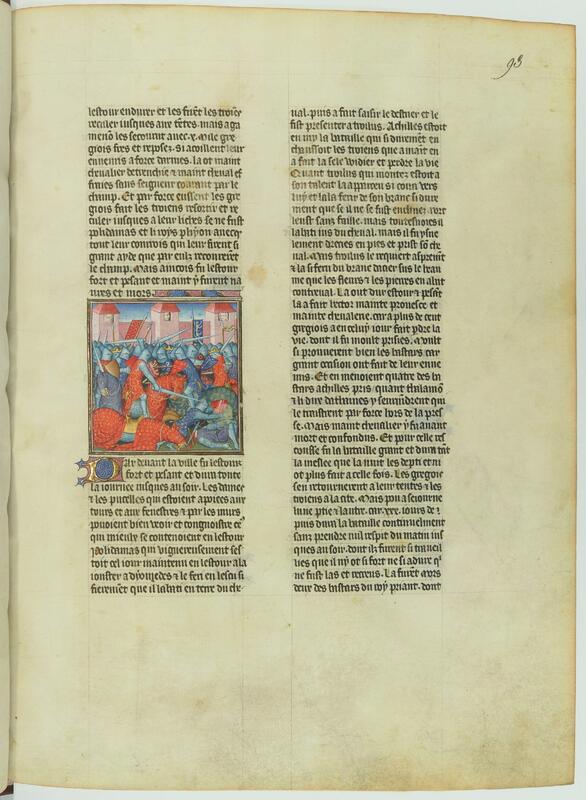 93
lestour endurer et les furet les troiens
reculer iusques aux tentes. mais aga
menon les secourut auec .x. mile gre
giois fres et reposez. si acoillent leur
ennemis a force darmes. la ot maint
cheualier detrenchie & maint cheual es
fraies sans seigneur courant par le
champ. Et par force eussent les gre
giois fait les troiens resortir et re
culer iusques a leur liches se ne fust
polidamas et li roys phyon auecques
tout leur conrois qui leur firent si
grant ayde que par eulz recouurerent
le champ. Mais aincois fu lestour
fort et pesant et maint y furent na
urez et mors.
Par deuant la ville fu lestour
fort et pesant et dura toute
la iournee iusques au soir. Les dames
& les pucelles qui estoient apoiees aux
tours et aux fenestres & par les murs
pouoient bien veoir et congnoistre ceulz
qui mieulz se contenoient en lestour
Polidamas qui viguereusement ses
toit cel iour maintenu en lestour ala
iouster a dyomedes & le feri en lescu si
fierement que il labati en terre du che
ual. puis a fait saisir le destrier et le
fist presenter a troilus. Achilles estoit
en my la bataille qui si durement en
chaussoit les troiens que a maint en
a fait la sele widier et perdre la vie
Quant troilus qui montez estoit a
son talent la apperceu si courut vers
luy et la la ferir de son branc si dure
ment que si il ne se fust enclinez mort
leust sanz faille. mais toutesuoies il
labati ius du cheual. mais il fu ysne
lement dreciez en pies et prist son che
ual. Mais troilus le requiert asprement
& la si feru du branc dacier sus le heau
me que les fleurs & les pierres en abat
contreual. La out dur estour & pesant
la a fait hector mainte prouesce et
mainte cheualerie. car a plus de cent
gregiois a en celuy iour fait perdre la
vie. dont il fu moult prisiez. Moult
si prouuerent bien les bastars car
grant occision ont fait de leur enne
mis. Et en menoient quatre des ba
stars achilles pris. quant thalamon
& li duc dathaines y seuruindrent qui
le traistrent par force hors de la pres
se. Mais maint cheualier y fu auant
mort et confondus. Et pour celle res
cousse fu la bataille grant et dura tant
la meslee que la nuit les departi et ni
ot plus fait a celle fois. Les gregiois
sen retournerent a leur tentes & les
troiens a la cite. Mais pou a seiourne
lune partie & lautre. car .xxx. iours de
puis dura la bataille continuelment
sanz prendre nul respit du matin ius
ques au soir. dont ilz furent si trauel
lies que il ny ot si fort ne si adure qui
ne fust las et recreus. La furent mors
deux des bastars du roy priant. dont